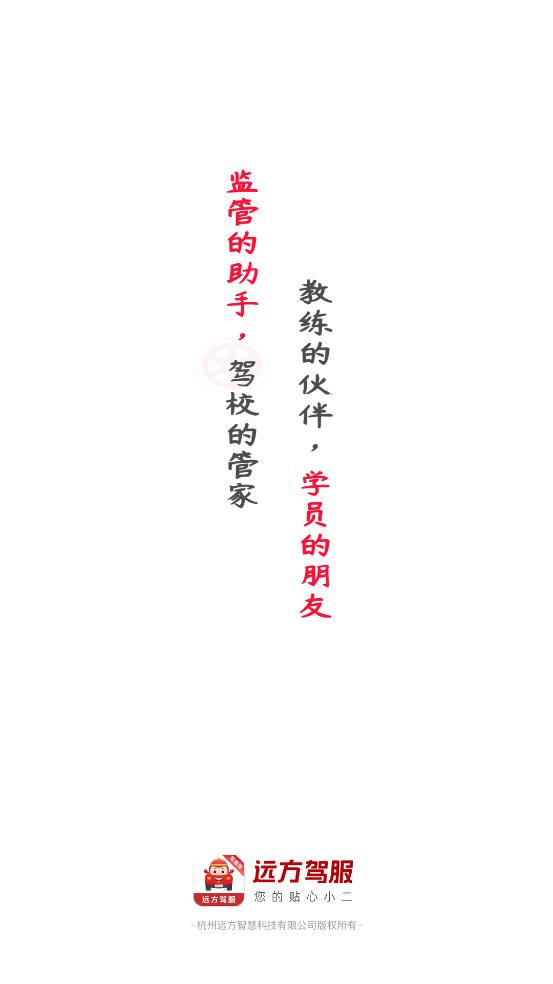 监管的助手，驾校的管家
教练的伙伴，学员的朋友
远方驾服
远方驾服
您的贴心小二
-杭州远方智慧科技有限公司版权所有-